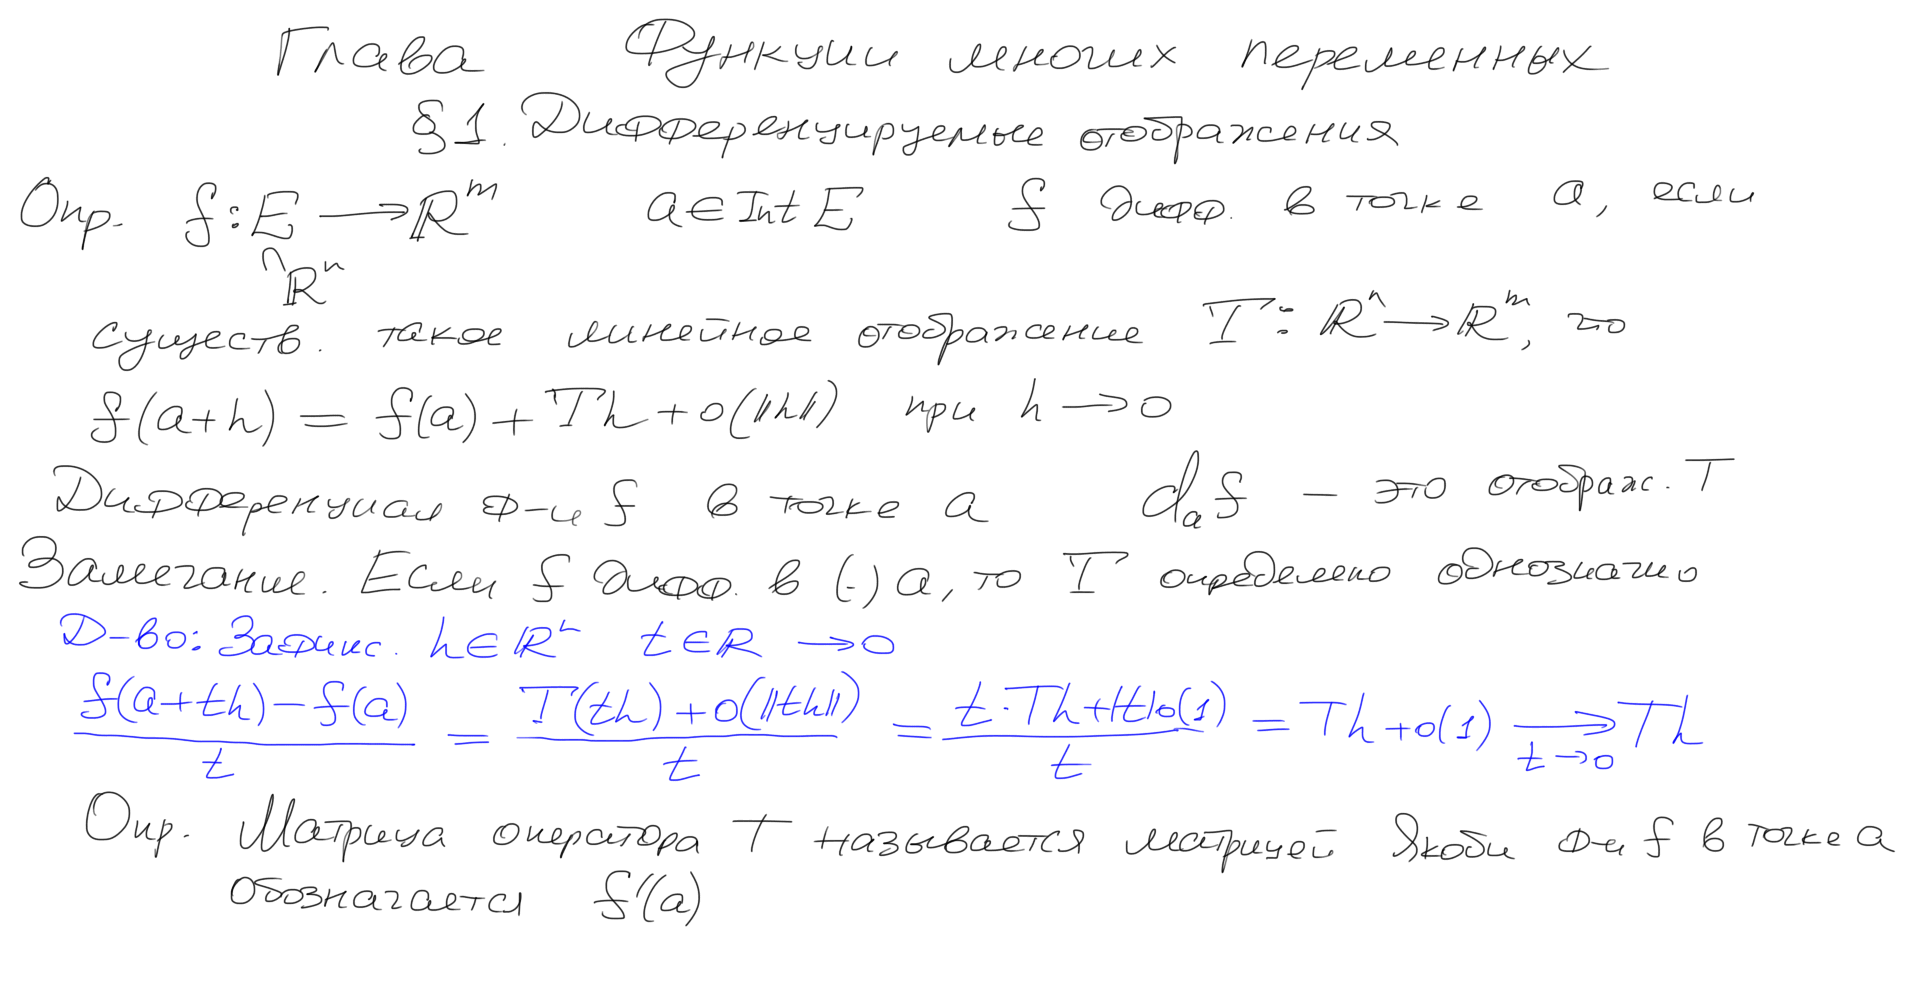 Глава Функции многих переменных
§1. Дифференцируемые отображения
Опр. f: E ⟶ ℝᵐ a ∈ Int E f дифф. в точке a, если
∩ ℝⁿ
существ. такое линейное отображение T: ℝⁿ ⟶ ℝᵐ, что
f(a+h) = f(a) + Th + o(‖h‖) при h → 0
Дифференциал ф-и f в точке a dₐf – это отображ. T
Замечание. Если f дифф. в (·) a, то T определено однозначно
Д-во: Зафикс. h ∈ ℝⁿ t ∈ ℝ → 0
(f(a+th) − f(a))/t = (T(th) + o(‖th‖))/t = (t·Th + |t|o(1))/t = Th + o(1) ⟶_{t→0} Th
Опр. Матрица оператора T называется матрицей Якоби ф-и f в точке a
обозначается f′(a)